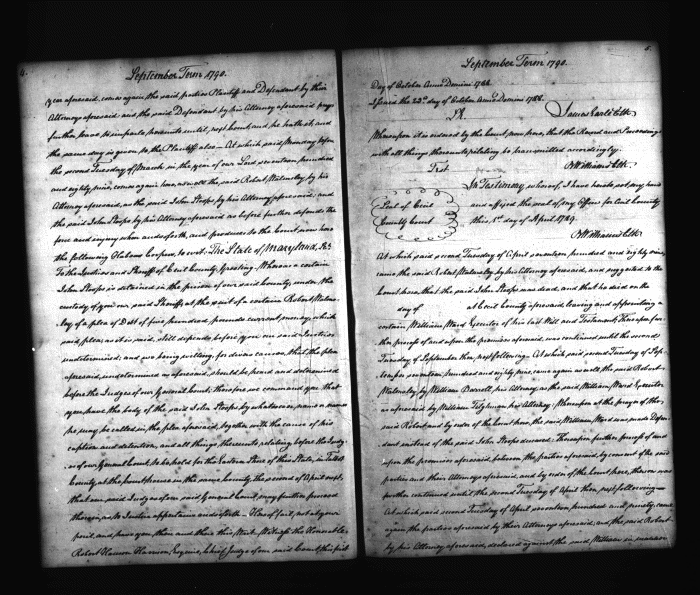 4.
September Term 1790.
year aforesaid, comes again the said parties Plaintiff and Defendant by their
Attorneys aforesaid and the said Defendant by his Attorney aforesaid prays
further leave to imparle hereunto until next Court and he hath it, and
the same day is given to the Plaintiff also - At which said Monday before
the second Tuesday of March in the year of our Lord seventeen hundred
and eighty nine, comes again here, as well the said Robert Walmsley by his
Attorney aforesaid, as the said John Stoops by his Attorney aforesaid; and
the said John Stoops by his Attorney aforesaid as before further defends the
force and injury when and so forth, and produces to the Court now here
the following Habeas Corpus, to wit: The State of Maryland, Sct
To the Justices and Sheriff of Cecil County, Greeting. Whereas a certain
John Stoops is detained in the prison of our said County under the
custody of you our said Sheriff at the suit of a certain Robert Walms-
ley of a plea of Debt of five hundred pounds current money, which
said plea, as it is said, still depends before you our said Justices
undetermined; and we being willing, for divers causes, that the plea
aforesaid, undetermined as aforesaid, should be heard and determined
before the Judges of our General Court; therefore we command you that
you have the body of the said John Stoops, by whatsoever name or names
he may be called in the plea aforesaid, together with the cause of his
caption and detention, and all things thereunto relating before the Judg-
es of our General Court, to be held for the Eastern Shore of this State, in Talbot
County at the Court house in the same County, the second of April next,
that our said Judges of our said General Court, may further proceed
therein, as to Justice appertains and so forth - Hereof fail not at your
peril, and have you then and there this Writ - Witness the Honourable
Robert Hanson Harrison, Esquire, Chief Judge of our said Court, the first
5.
September Term 1790.
Day of October Anno Domini 1788.
Issued the 22nd day of October Anno Domini 1788.
James Earle Clk.
Whereupon it is ordered by the Court, now here, that the Record and Proceedings
with all things thereunto relating be transmitted accordingly.
Test
Williams Clk.
Seal of Cecil
County Court
In Testimony whereof, I have hereto set my hand
and affixed the seal of my Office for Cecil County
this 1st day of April 1789.
Williams Clk.
At which said second Tuesday of April seventeen hundred and eighty nine,
came the said Robert Walmsley by his Attorney aforesaid, and suggested to the
Court here, that the said John Stoops was dead, and that he died on the
day of at Cecil County aforesaid, leaving and appointing a
certain William Ward Executor of his last Will and Testament; Thereupon fur-
ther process of and upon the premises aforesaid, was continued until the second
Tuesday of September then next following - At which said second Tuesday of Sep-
tember seventeen hundred and eighty nine, came again as well the said Robert
Walmsley by William Barroll, his Attorney, as the said William Ward Executor
as aforesaid by William Tilghman his Attorney; Whereupon at the prayer of the
said Robert and by order of the Court here, the said William Ward was made Defen-
dant instead of the said John Stoops deceased - Thereupon further process of and
upon the premises aforesaid, between the parties aforesaid, by consent of the said
parties and their Attorneys aforesaid, and by order of the Court here, thereon was
further continued until the second Tuesday of April then next following -
At which said second Tuesday of April seventeen hundred and ninety, came
again the parties aforesaid by their Attorneys aforesaid, and the said Robert
by his Attorney aforesaid, declared against the said William in manner